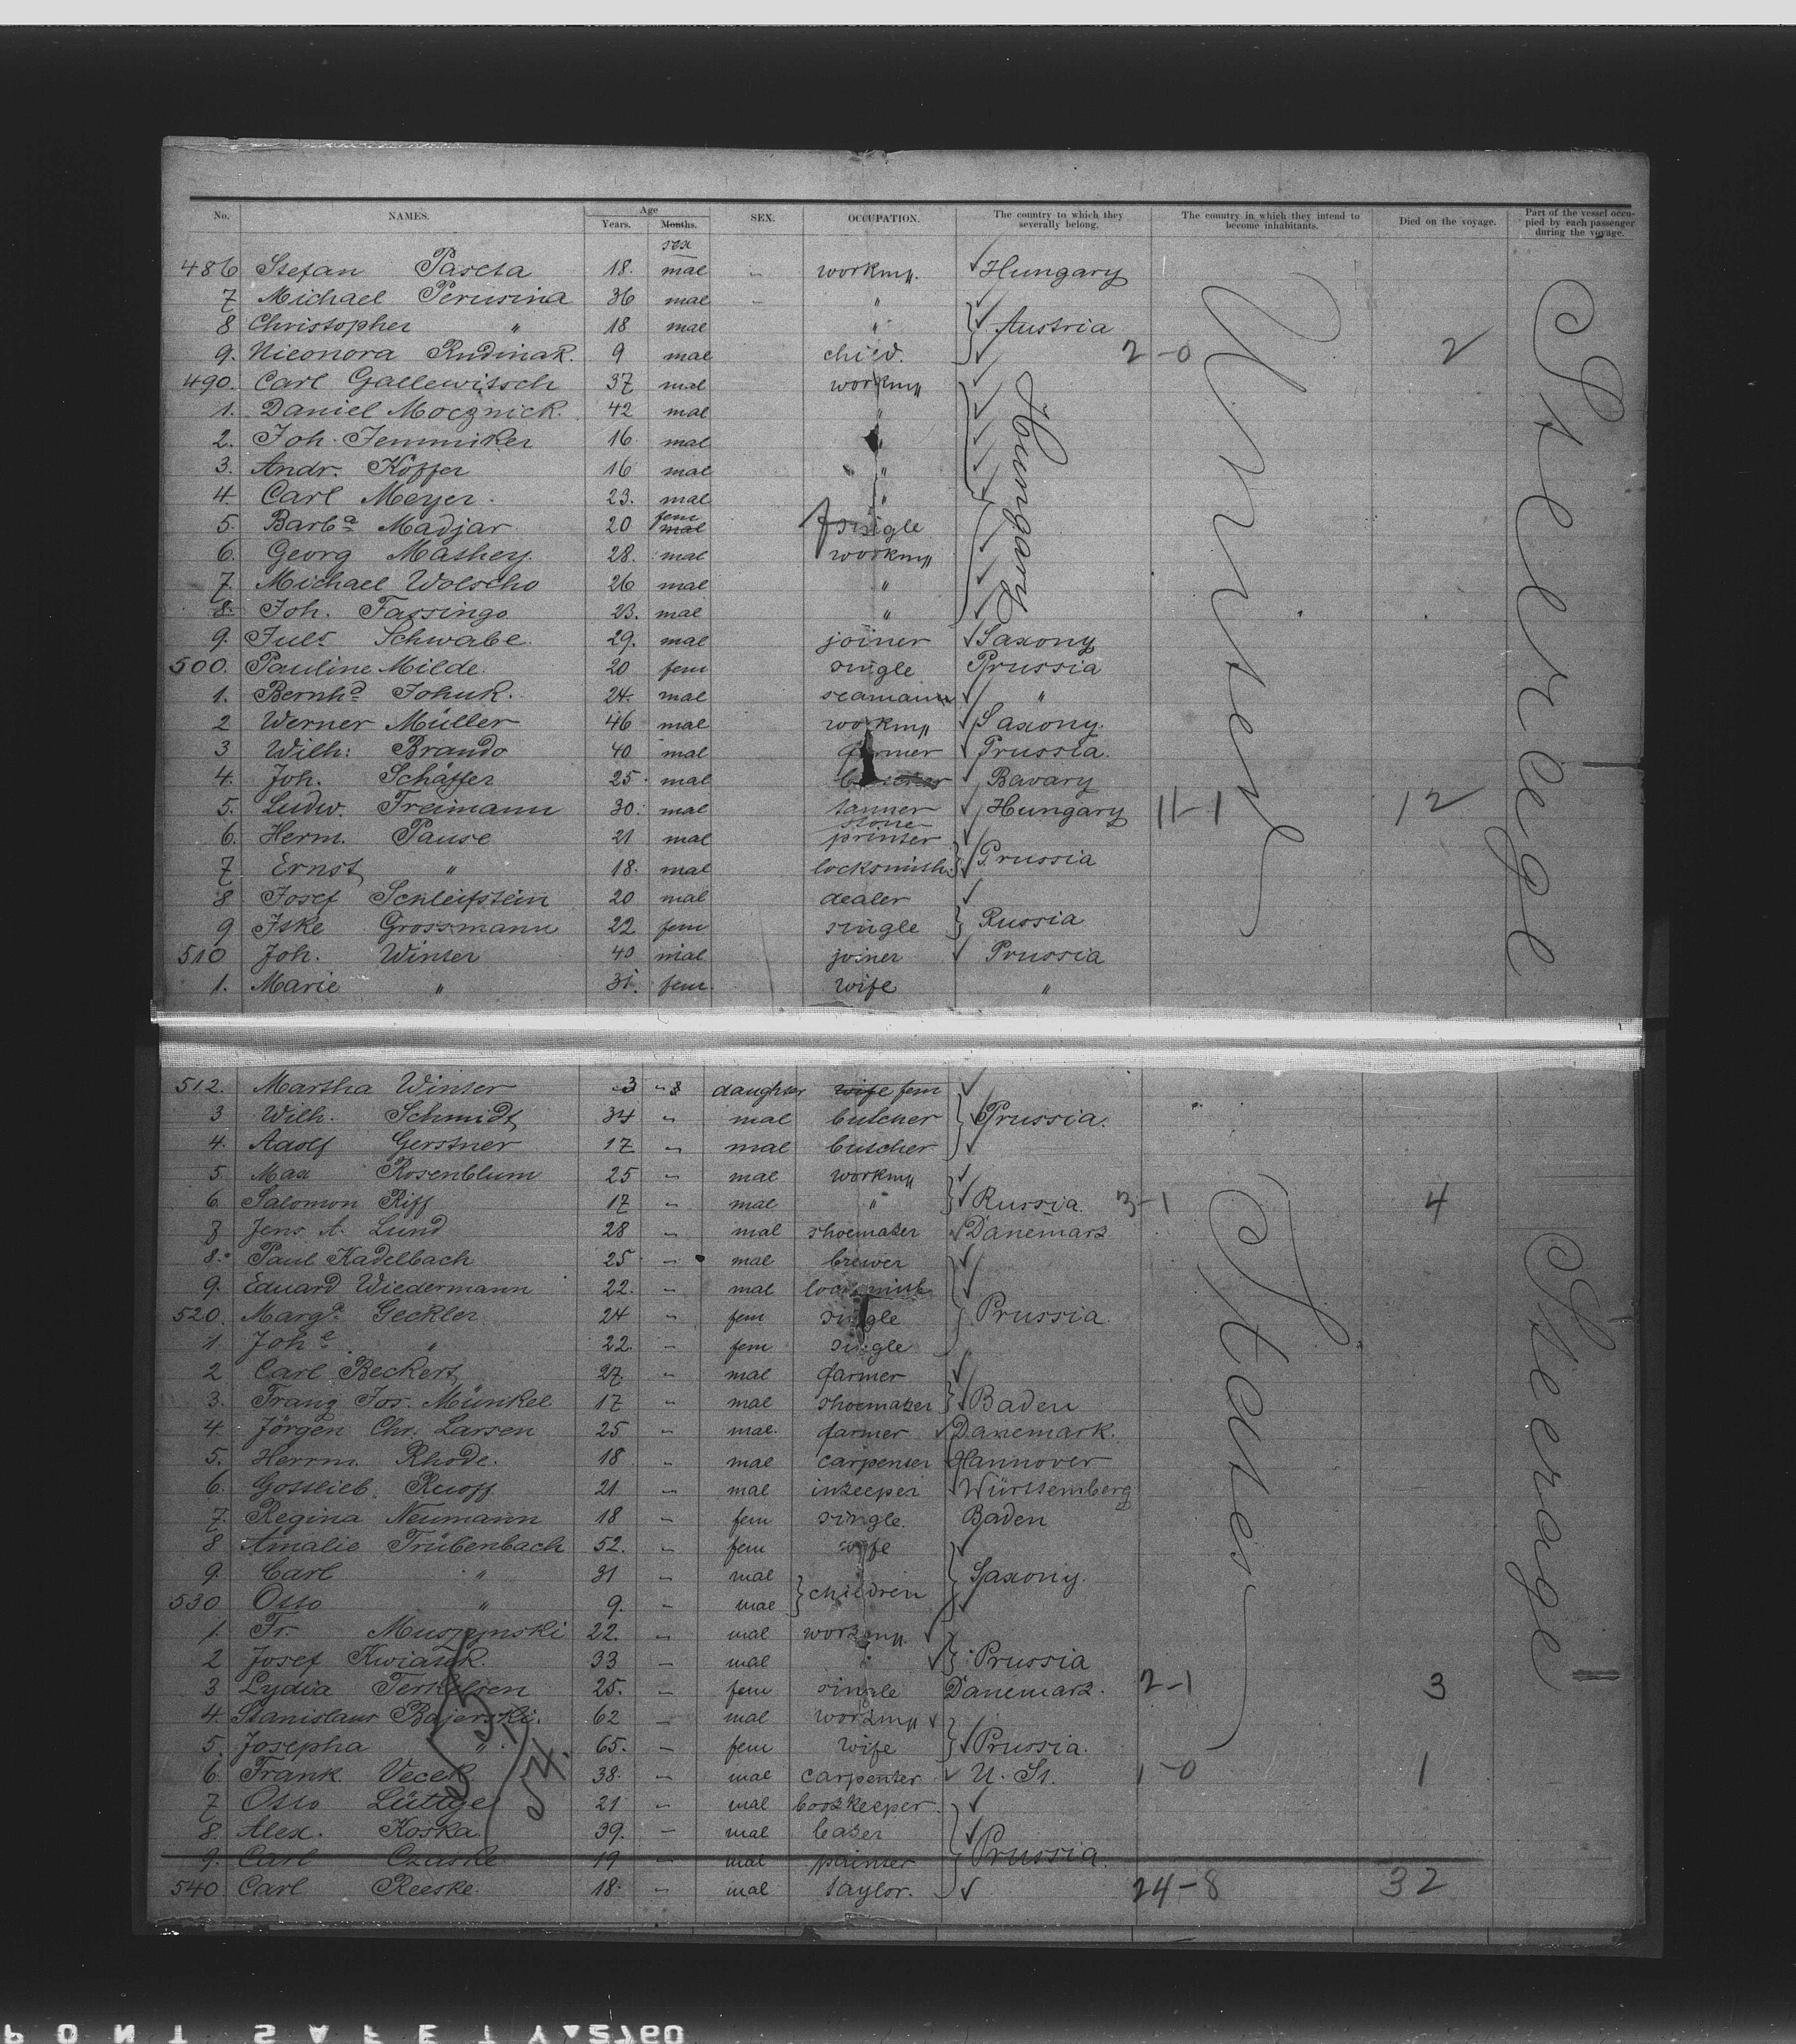 No. NAMES. Age SEX. OCCUPATION. The country to which they severally belong. The country in which they intend to become inhabitants. Died on the voyage. Part of the vessel occupied by each passenger during the voyage.
Years. Months.
sex
486 Stefan 18. mal workm,, Hungary
7 Michael Perusina 36 mal "
8 Christopher " 18 mal " Austria
9. Rudinak 9 mal child. 2-0 2
490. Carl Gallewitsch 37 mal workm,,
1. Daniel Mocznick. 42 mal " Hungary
2. Joh. Jemmiker 16 mal "
3. Andr. Köffer 16 mal "
4. Carl Meyer. 23. mal "
5. Barba Madjar 20 fem mal single
6. Georg Mathey. 28. mal workm,,
7. Michael Wolscho 26 mal "
8. Joh. Fassingo 23. mal "
9. Juls Schwabe. 29. mal joiner Saxony
500. Pauline Milde. 20 fem single Prussia
1. Bernhd Johuk. 24. mal seamann "
2 Werner Müller 46 mal workm,, Saxony.
3 Wilh: Brando 40 mal farmer Prussia.
4. Joh. Schäffer 25. mal butcher Bavary
5. Ludw. Freimann 30. mal tanner Hungary 11-1 12
6. Herm. Pause 21 mal stone printer
7 Ernst " 18. mal locksmith. Prussia
8 Josef Schleifstein 20 mal dealer
9 Iske Grossmann 22 fem single Russia
510 Joh. Winter 40 mal joiner Prussia
1. Marie " 31. fem. wife "
United
Steerage
512. Martha Winter 3 " 8 daughter wife fem
3 Wilh. Schmidt 34 " mal butcher Prussia.
4. Adolf Gerstner 17 " mal butcher
5. Max Rosenblum 25 " mal workm,,
6. Salomon Riff 17 " mal " Russia. 3-1 4
7 Jens A. Lund 28 " mal shoemaker Danemark
8. Paul Kadelbach 25 " mal brewer
9. Eduard Wiedermann 22. " mal locksmith
520. Marga Geckler 24 " fem single Prussia.
1 Johe " 22. " fem single
2 Carl Beckert 27 " mal farmer
3. Franz Jos. Münkel 17 " mal shoemaker Baden
4. Jörgen Chr. Larsen 25 " mal. farmer Danemark.
5. Herrm. Rhode. 18 " mal carpenter Hannover
6. Gottlieb Ruoff 21 " mal inkeeper Württemberg
7. Regina Neumann 18 " fem single. Baden
8 Amalie Trübenbach 52. " fem wife
9. Carl " 31 " mal children Saxony.
530 Otto " 9. " mal
1. Fr. Muszynski 22. " mal workm,,
2 Josef Kwiatek. 33 " mal " Prussia
3 Lydia Terkelsen 25. " fem single Danemark. 2-1 3
4. Stanislaus Bajerski. 62 " mal workm,,
5. Josepha " 65. " fem wife Prussia.
6. Frank Vecek 38. " mal carpenter U. St. 1-0 1
7 Otto Lüttge 21 " mal bookkeeper.
8. Alex. Koska. 39. " mal baker
9. Carl Czaske 19 " mal painter Prussia.
540 Carl Reeske. 18. " mal taylor. 24-8 32
States
Steerage